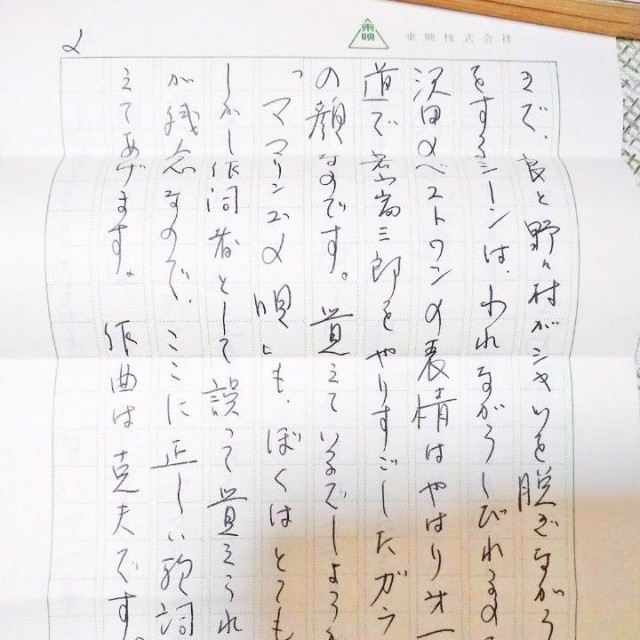 2
東映
東映株式会社
まで、良と野々村がシャツを脱ぎながら
をするシーンは、われながらしびれるの
沢田のベストワンの表情はやはり
道で 三郎をやりすごしたガラ
の顔なのです。覚えているでしょうか
「ママリンゴの唄」も、ぼくはとても
しかし作詞者として誤って覚えられ
が残念なので、ここに正しい歌詞
えてあげます。 作曲は克夫です。